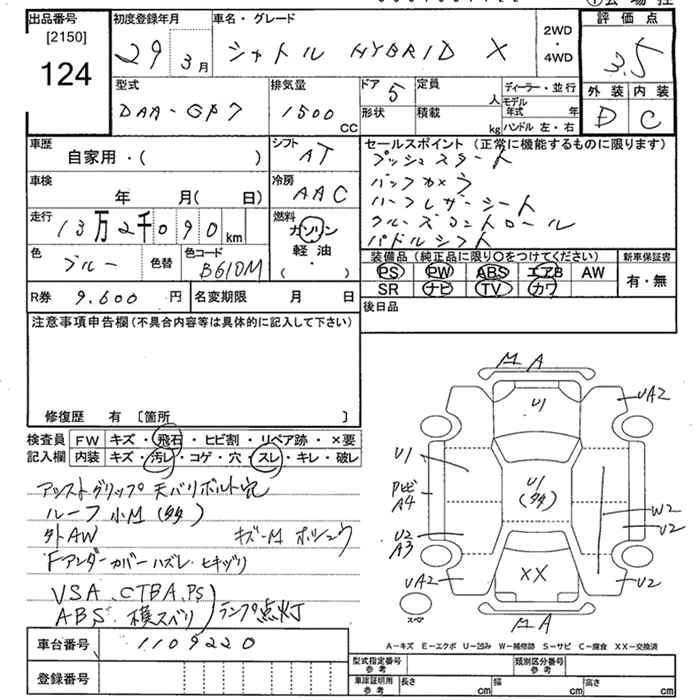 出品番号 初度登録年月 車名・グレード 評価点
[2150]
124
29年 3月 シャトル HYBRID X 2WD・4WD 3.5
型式 排気量 ドア 5 定員 人 ディーラー・並行 外装 内装
DAA-GP7 1500 CC 形状 積載 kg モデル年式 年 ハンドル 左・右 D C
車歴 自家用・( ) シフト AT セールスポイント(正常に機能するものに限ります)
プッシュスタート
バックカメラ
ハーフレザーシート
クルーズコントロール
パドルシフト
車検 年 月( 日) 冷房 AAC
走行 13万2千090 km 燃料 ガソリン・軽油・( )
色 ブルー 色替 色コード B610M
装備品(純正品に限り○をつけてください) 新車保証書
PS PW ABS エアB AW 有・無
SR ナビ TV カワ
R券 9,600円 名変期限 月 日 後日品
注意事項申告欄(不具合内容等は具体的に記入して下さい)
修復歴 有 [箇所 ]
検査員 FW キズ・飛石・ヒビ割・リペア跡・×要
記入欄 内装 キズ・汚レ・コゲ・穴・スレ・キレ・破レ
アシストグリップ 天バリボルト穴
ルーフ 小M(多)
外AW キズ-M ホシュウ
Fアンダーカバーハズレ・ヒキヅリ
VSA.CTBA.PS
ABS.横スベリ ランプ点灯
車台番号 1109220
登録番号
M A
U1
UA2
U1
U1
(多)
トビ
A4
W2
U2
U2
A3
XX
UA2
U2
スペア
M A
A-キズ E-エクボ U-凹み W-補修跡 S-サビ C-腐食 XX-交換済
型式指定番号 参考 類別区分番号 参考
車庫証明用 参考 長さ cm 幅 cm 高さ cm